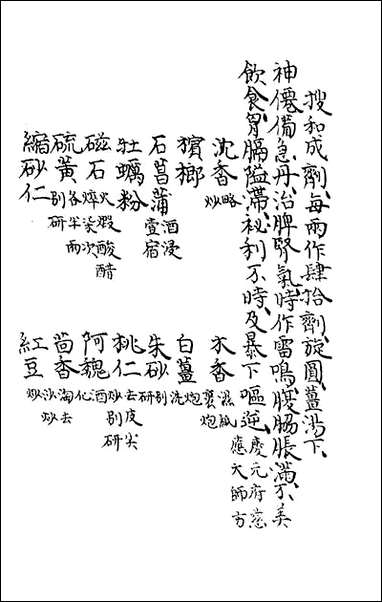 搜和成劑每兩作肆拾劑旋圓薑湯下
神僊備急丹治脾腎氣時作雷鳴腹脇脹滿不美
飲食胃膈隘滯祕利不時及暴下嘔逆慶元府慈應大師方
沈香略炒 木香濕紙裹炮
檳榔 白薑炮洗
石菖蒲酒浸壹宿 朱砂別研
牡蠣粉 桃仁去皮尖炒別研
磁石火煅酸醋焠染次 阿魏酒化
硫黃各半兩別研 茴香淘去沙炒
縮砂仁 紅豆炒